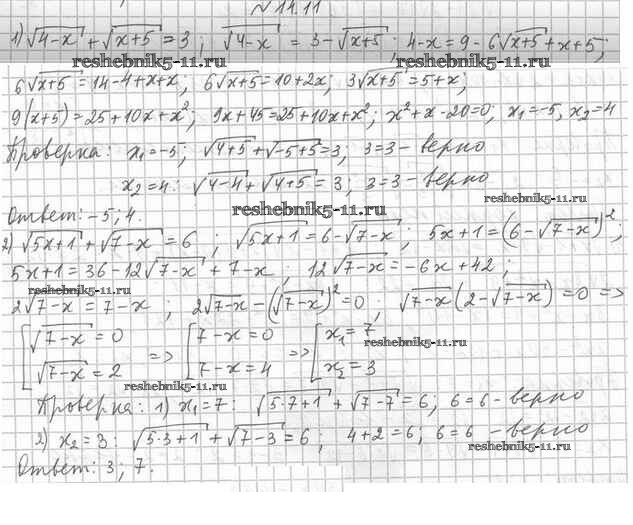 № 14.11
1) √(4-x) + √(x+5) = 3; √(4-x) = 3 - √(x+5); 4-x = 9 - 6√(x+5) + x+5;
reshebnik5-11.ru reshebnik5-11.ru
6√(x+5) = 14-4+x+x; 6√(x+5) = 10+2x; 3√(x+5) = 5+x;
9(x+5) = 25+10x+x²; 9x+45 = 25+10x+x²; x²+x-20=0; x₁=-5, x₂=4
Проверка: x₁=-5; √(4+5) + √(-5+5) = 3; 3=3 - верно
x₂=4: √(4-4) + √(4+5) = 3; 3=3 - верно
reshebnik5-11.ru
Ответ: -5; 4.
reshebnik5-11.ru
2) √(5x+1) + √(7-x) = 6; √(5x+1) = 6 - √(7-x); 5x+1 = (6-√(7-x))²;
5x+1 = 36-12√(7-x) + 7-x; 12√(7-x) = -6x+42;
2√(7-x) = 7-x; 2√(7-x) - (√(7-x))² = 0; √(7-x)(2-√(7-x)) = 0 =>
[√(7-x) = 0 => [7-x=0 => [x₁=7
reshebnik5-11.ru
√(7-x) = 2 7-x=4 x₂=3
reshebnik5-11.ru
Проверка: 1) x₁=7: √(5·7+1) + √(7-7) = 6; 6=6 - верно
2) x₂=3: √(5·3+1) + √(7-3) = 6; 4+2=6; 6=6 - верно
reshebnik5-11.ru
Ответ: 3; 7.